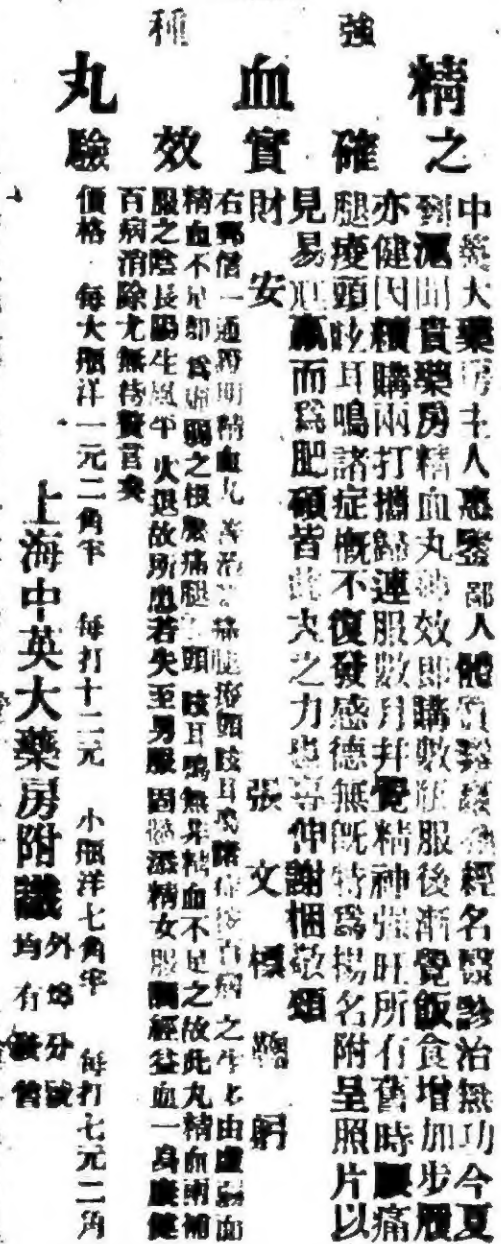 強種
精血丸
之確實效驗
中藥大藥房主人惠鑒鄙人體質經名醫診治無功今夏
到滬聞貴藥房精血丸效即購數瓶服後漸覺飯食增加步履
亦健因續購兩打攜歸連服數月并覺精神強旺所有舊時腰痛
腿痠頭眩耳鳴諸症概不復發感德無既特為揚名附呈照片以
見易羸而為肥碩皆此丸之力也專伸謝悃敬頌
財安 張文 鞠躬
右郵信一通證明精血丸善治腿痠頭眩耳鳴諸症百病之生由虛弱而
精血不足即為之根腰痛腿頭眩耳鳴無非精血不足之故此丸精血兩補
服之陰長陽生風平火退故所患若失至男服固添精女服調經益血一身康健
百病消除尤無待贅言矣
價格 每大瓶洋一元二角 每打十二元 小瓶洋七角 每打七元二角
上海中英大藥房附識 外埠分
均有